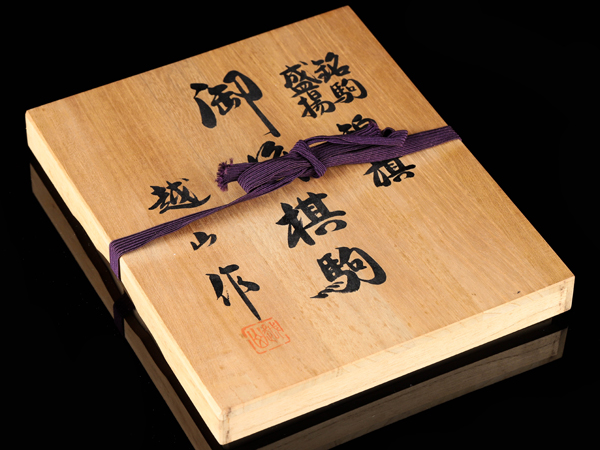 銘駒
盛揚
御将棋駒
越山作